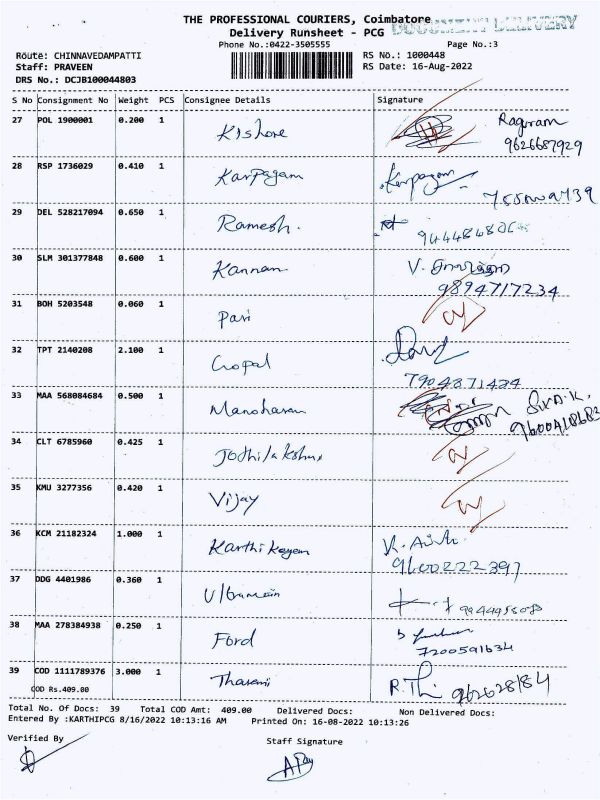 THE PROFESSIONAL COURIERS, Coimbatore
DOCUMENT DELIVERY
Delivery Runsheet - PCG
Phone No.:0422-3505555 Page No.:3
Route: CHINNAVEDAMPATTI RS No.: 1000448
Staff: PRAVEEN RS Date: 16-Aug-2022
DRS No.: DCJB100044803
S No Consignment No Weight PCS Consignee Details Signature
27 POL 1900001 0.200 1 Kishore Raguram
9626687929
28 RSP 1736029 0.410 1 Karpagam Karpagam
29 DEL 528217094 0.650 1 Ramesh.
30 SLM 301377848 0.600 1 Kannan V.
9894717234
31 BOH 5203548 0.060 1 Pari
32 TPT 2140208 2.100 1 Gopal
7904871424
33 MAA 568084684 0.500 1 Manoharan
34 CLT 6785960 0.425 1 Jothilakshmi
35 KMU 3277356 0.420 1 Vijay
36 KCM 21182324 1.000 1 Karthikeyan
9600222397
37 DDG 4401986 0.360 1
38 MAA 278384938 0.250 1 Ford
7200591634
39 COD 1111789376 3.000 1 Tharani
COD Rs.409.00
Total No. Of Docs: 39 Total COD Amt: 409.00 Delivered Docs: Non Delivered Docs:
Entered By :KARTHIPCG 8/16/2022 10:13:16 AM Printed On: 16-08-2022 10:13:26
Verified By Staff Signature